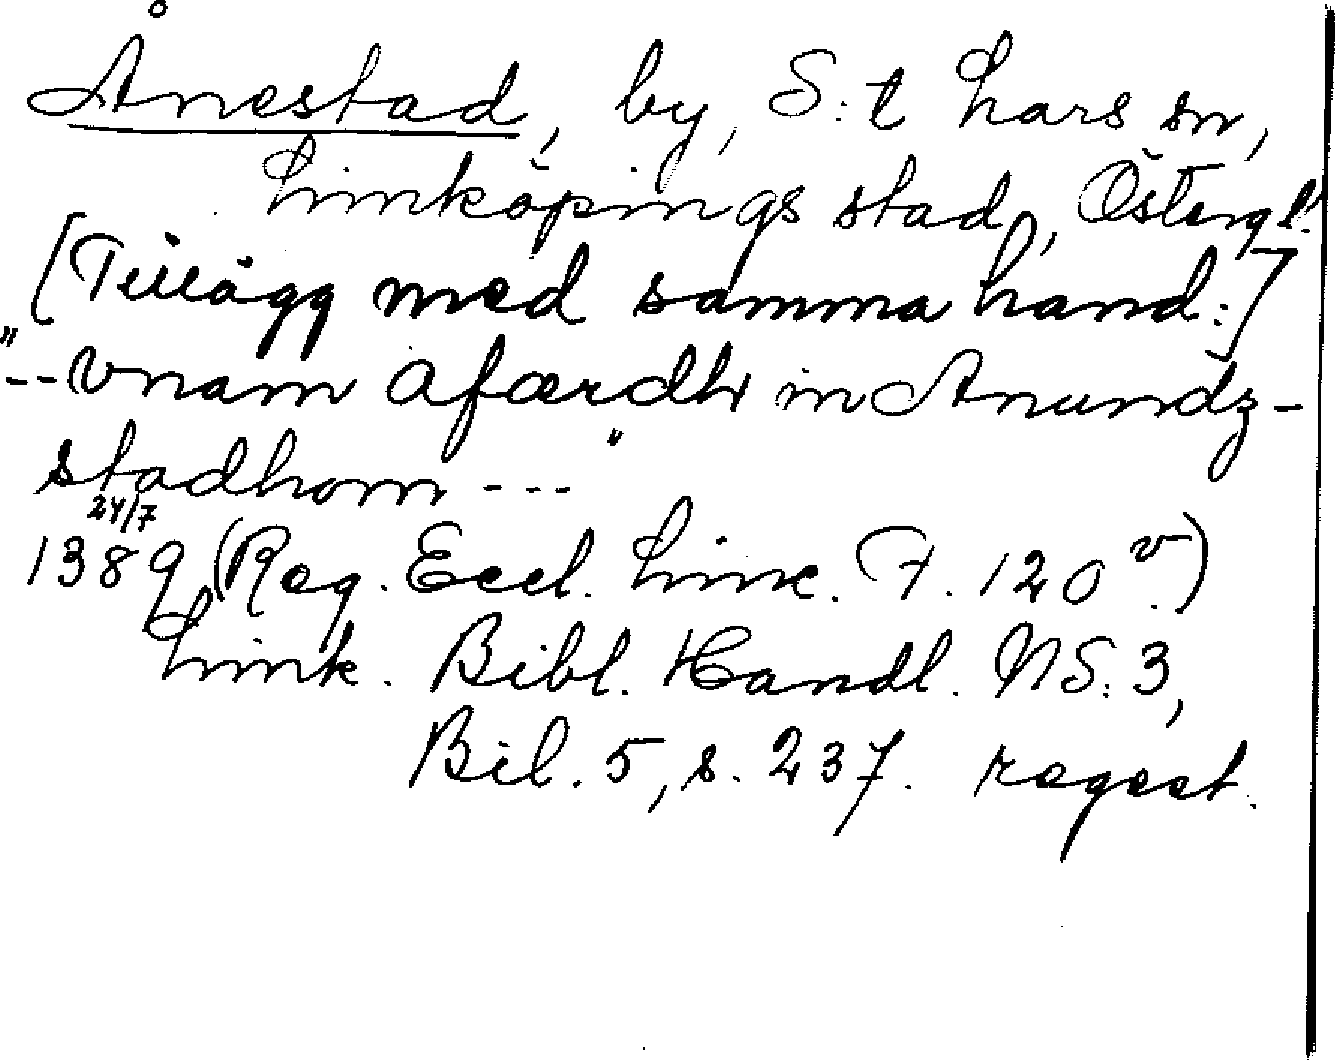 Ånestad, by, S:t Lars sn,
Linköpings stad, Östergl.
[Tillägg med samma hand:]
"--vnam afærdh in Anundz-
stadhom ---"
1389 24/7 (Reg. Eccl. Linc. F. 120 v.)
Link. Bibl. Handl. NS: 3,
Bil. 5, s. 237. regest.